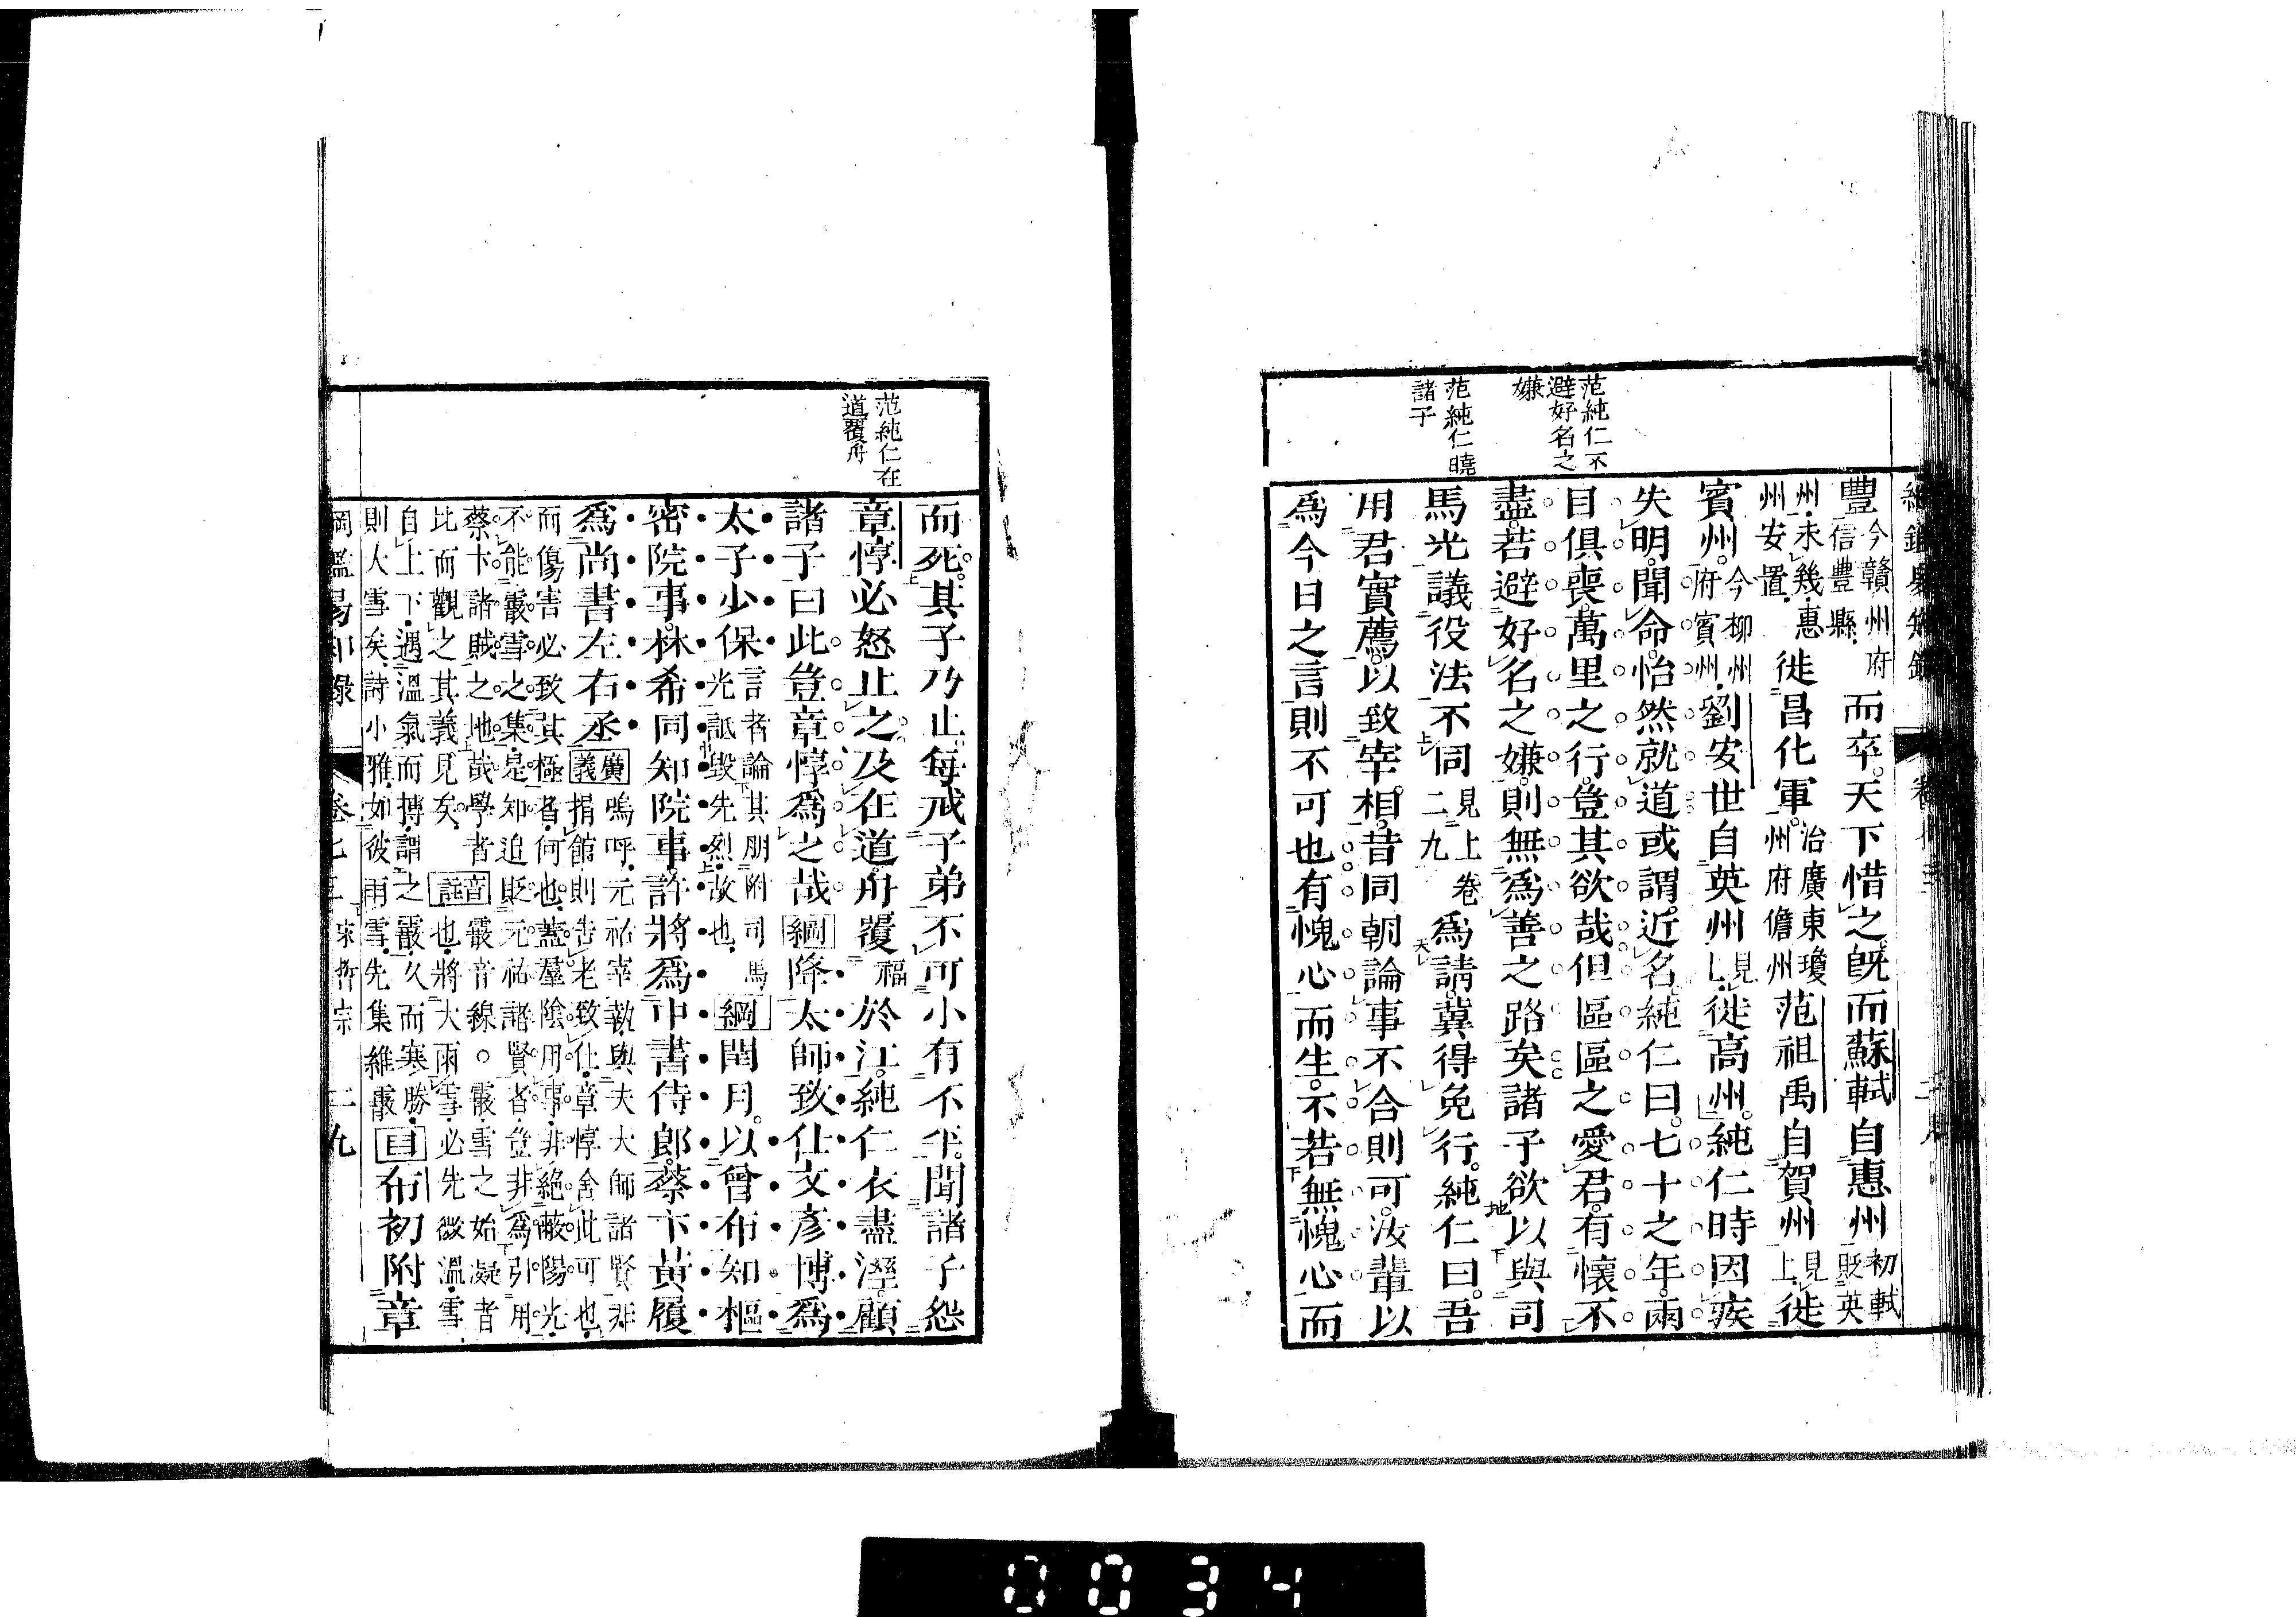 范純仁不
避好名之
嫌
范純仁曉
諸子
豐今贛州府信豐縣而卒天下惜之旣而蘇軾自惠州初軾貶英
州未幾惠州安置徙昌化軍治廣東瓊州府儋州范祖禹自賀州見上徙
賓州今柳州府賓州劉安世自英州見上徙高州純仁時因疾
失明聞命怡然就道或謂近名純仁曰七十之年兩
目俱喪萬里之行豈其欲哉但區區之愛君有懷不
盡若避好名之嫌則無爲善之路矣諸子欲以與司
馬光議役法不同見上卷二九爲請冀得免行純仁曰吾
用君實薦以致宰相昔同朝論事不合則可汝輩以
爲今日之言則不可也有愧心而生不若無愧心而
范純仁在
道覆舟
而死其子乃止每戒子弟不可小有不平聞諸子怨
章惇必怒止之及在道舟覆福於江純仁衣盡溼顧
諸子曰此豈章惇爲之哉綱降太師致仕文彥博爲
太子少保言者論其朋附司馬光詆毀先烈故也綱閏月以曾布知樞
密院事林希同知院事許將爲中書侍郎蔡卞黃履
爲尚書左右丞廣義嗚呼元祐宰執與夫大師諸賢非捐館則告老致仕章惇舍此可也
而傷害必致其極者何也蓋羣陰用事非絕蔽陽光
不能霰雪之集是知追貶元祐諸賢者豈非爲引用
蔡卞諸賊之地哉學者比而觀之其義見矣音註霰音線○霰雪之始凝者也將大雨雪必先微溫雪
自上下遇溫氣而搏謂之霰久而寒勝
則大雪矣詩小雅如彼雨雪先集維霰目布初附章
綱鑑易知錄 卷七 宋哲宗 二九